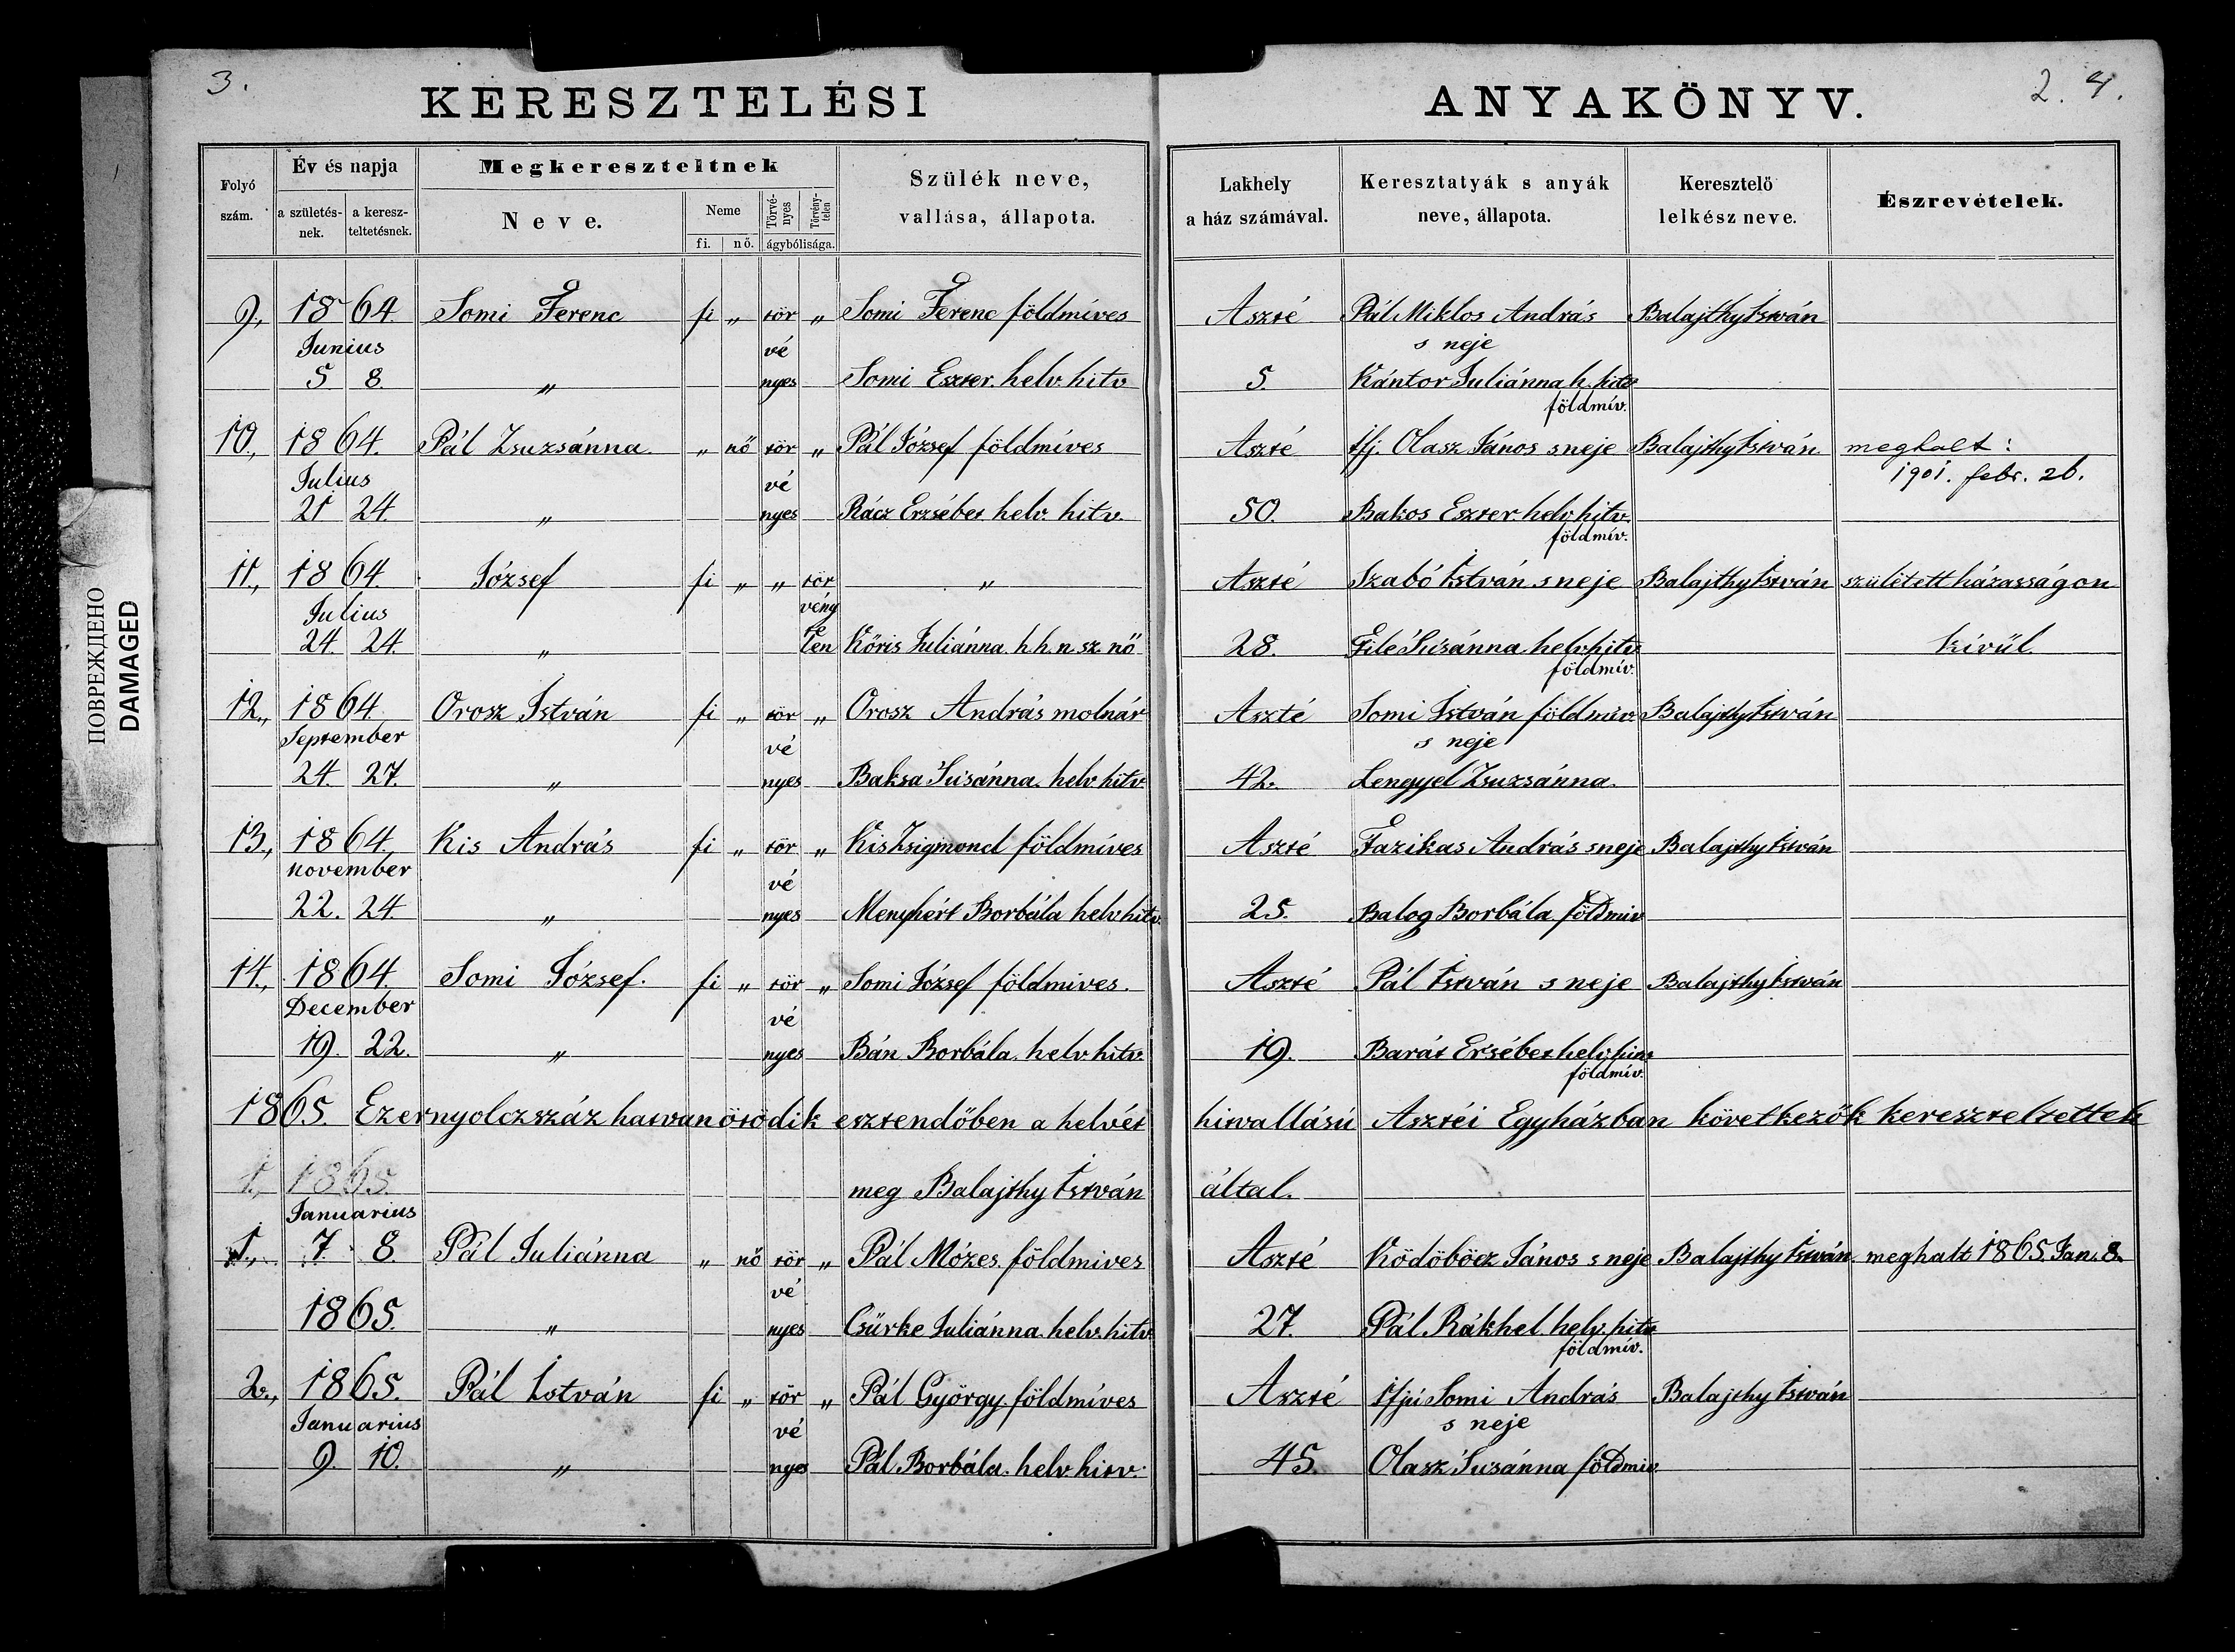 3.
2. 4.
KERESZTELÉSI ANYAKÖNYV.
ПОВРЕЖДЕНО
DAMAGED
Folyó szám.
Év és napja
a születés-nek.
a keresz-teltetésnek.
Megkereszteltnek
Neve.
Neme
fi.
nő.
Törvé-nyes
Törvény-telen
ágybólisága.
Szülék neve, vallása, állapota.
Lakhely a ház számával.
Keresztatyák s anyák neve, állapota.
Keresztelő lelkész neve.
Észrevételek.
9., 1864. Somi Ferenc fi „ tör „ Somi Ferenc földmíves Aszté Pál Miklos András Balajthy István
Junius vé s neje
5. 8. „ nyes Somi Eszter helv. hitv 5. Kántor Juliánna h. hitv
földmív.
10., 1864. Pál Zsuzsánna „ nő tör „ Pál József földmíves Aszté Ifj. Olasz János s neje Balajthy István meghalt:
Julius vé 1901. febr. 26.
21 24. „ nyes Rácz Erzsébet helv. hitv. 50. Bakos Eszter helv hitv.
földmív.
11., 1864. József fi „ „ tör „ Aszté Szabó István s neje Balajthy István született házasságon
Julius vény
24. 24. „ te len Kőris Juliánna h.h. n. sz. nő 28. File Susánna helv hitv kívül
földmív.
12., 1864 Orosz István fi „ tör „ Orosz András molnár Aszté Somi István földmív. Balajthy István
September vé s neje
24. 27. „ nyes Baksa Susánna helv hitv. 42. Lengyel Zsuzsánna.
13., 1864. Kis András fi „ tör „ Kis Zsigmond földmíves Aszté Fazikas András s neje Balajthy István
november vé
22. 24. „ nyes Menyhért Borbála helv hitv. 25. Balog Borbála földmiv
14., 1864. Somi József. fi „ tör „ Somi József földmives. Aszté Pál István s neje Balajthy István
December vé
19. 22. „ nyes Bán Borbála helv hitv. 19. Barát Ersébet helv hitv
földmív.
1865. Ezernyolczszáz hatvanötödik esztendőben a helvét hitvallású Asztéi Egyházban következők kereszteltettek
1., 1865. meg Balajthy István által.
Januarius
1., 7. 8. Pál Juliánna „ nő tör „ Pál Mózes földmives Aszté Ködöböcz János s neje Balajthy István meghalt 1865. Jan. 8.
vé
1865. „ nyes Csürke Juliánna helv. hitv 27. Pál Rákhel helv. hitv
földmív.
2., 1865. Pál István fi „ tör „ Pál György földmíves Aszté Ifjú Somi András Balajthy István
Januarius vé s neje
9. 10. „ nyes Pál Borbála helv hitv. 45. Olasz Susánna földmiv.